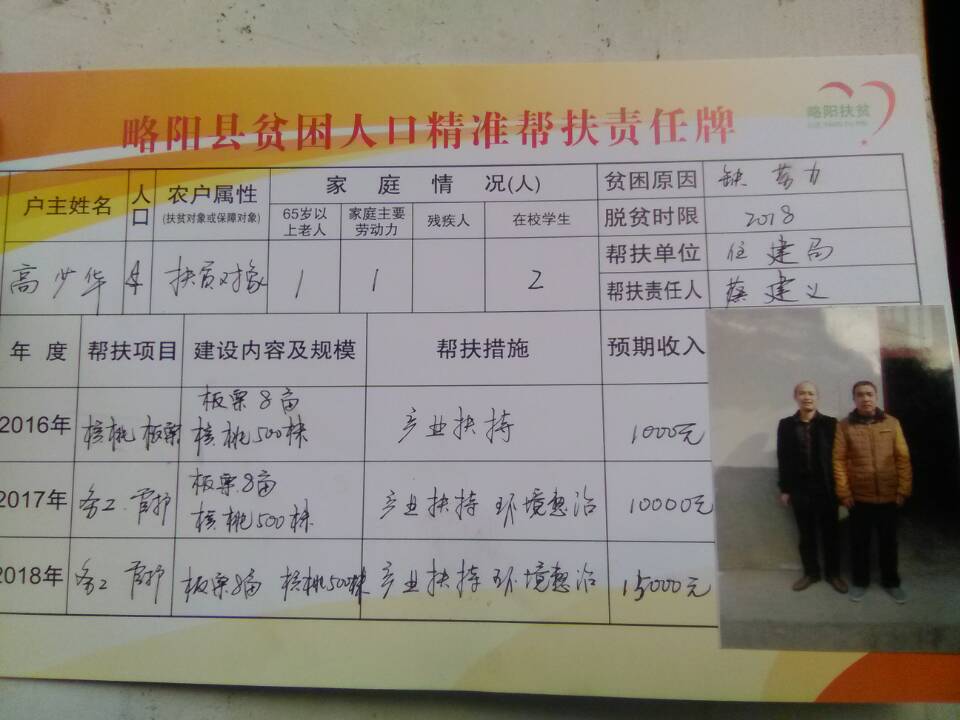 略阳扶贫
略阳县贫困人口精准帮扶责任牌
户主姓名 人口 农户属性 (扶贫对象或保障对象) 家庭情况(人) 贫困原因 缺劳力
65岁以上老人 家庭主要劳动力 残疾人 在校学生 脱贫时限 2018
高少华 4 扶贫对象 1 1 2 帮扶单位 住建局
帮扶责任人 蔡建义
年度 帮扶项目 建设内容及规模 帮扶措施 预期收入
2016年 核桃 板栗 板栗8亩 核桃500株 产业扶持 1000元
2017年 务工 管护 板栗8亩 核桃500株 产业扶持 环境整治 10000元
2018年 务工 管护 板栗8亩 核桃500株 产业扶持 环境整治 15000元